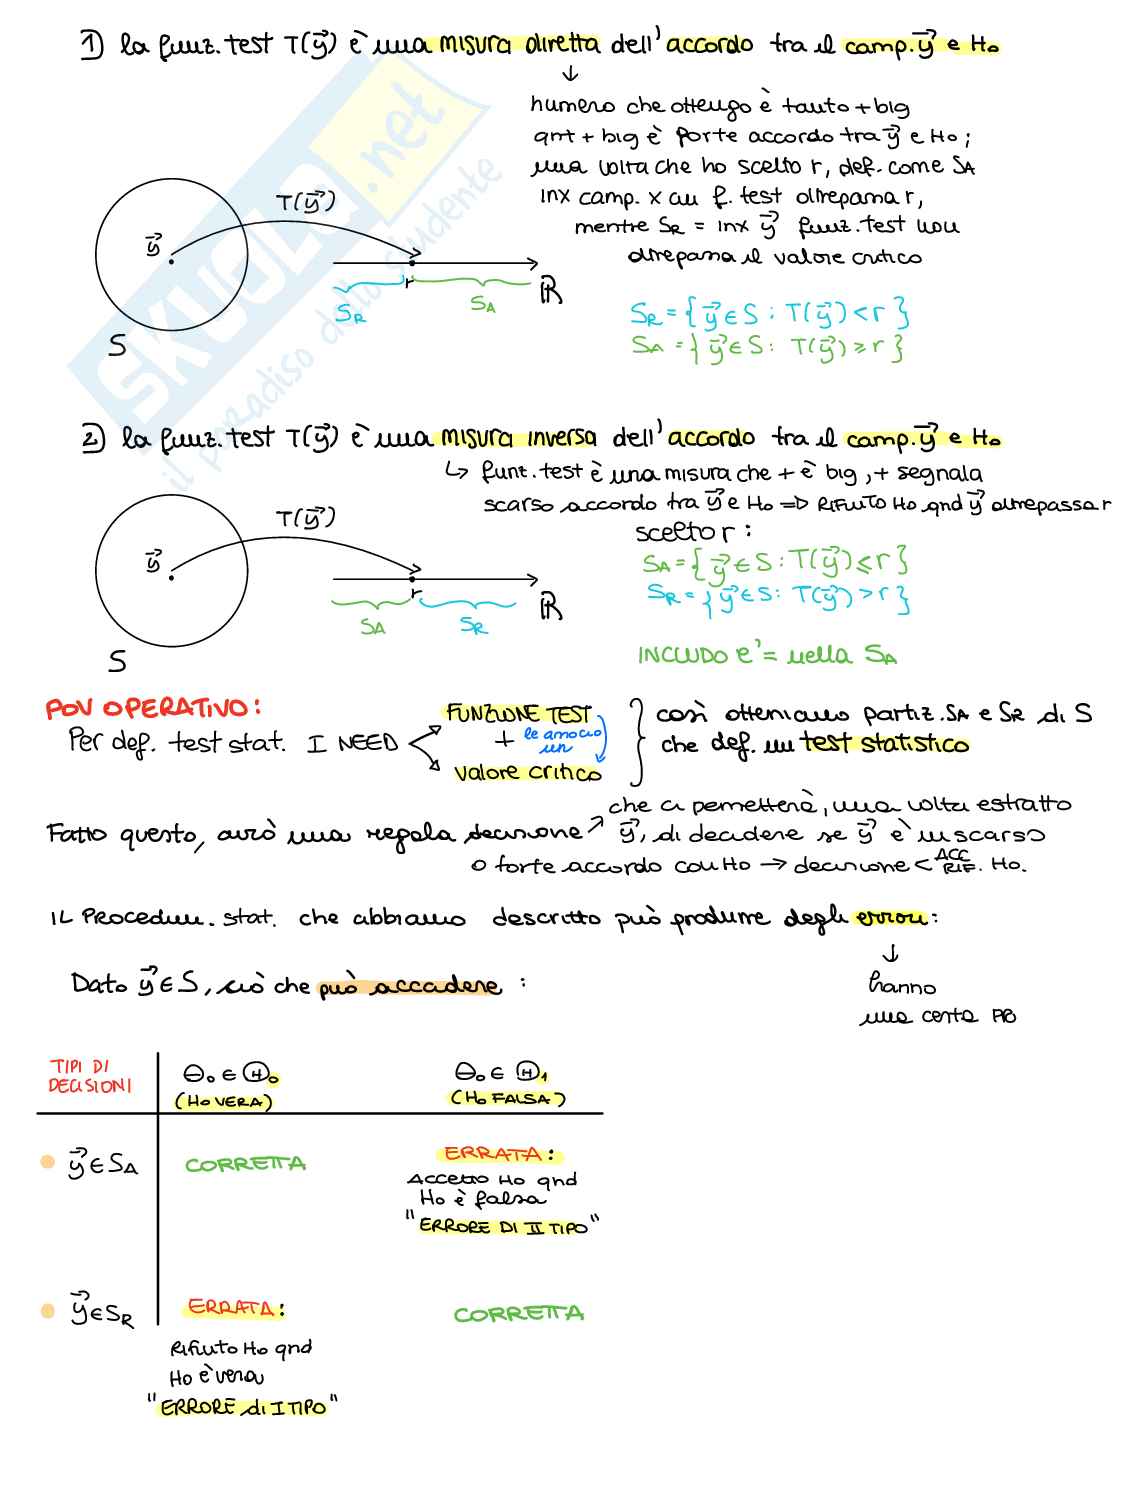 1) la funz. test T(y⃗) è una misura diretta dell'accordo tra il camp. y⃗ e H₀
↓
numero che ottengo è tanto + big
qnt + big è forte accordo tra y⃗ e H₀;
una volta che ho scelto r, def. come SA
inx camp. x cui f. test oltrepassa r,
mentre SR = inx y⃗ funz. test non
oltrepassa il valore critico
T(y⃗)
y⃗
r
SR
SA
ℝ
S
SR = { y⃗ ∈ S : T(y⃗) < r }
SA = { y⃗ ∈ S : T(y⃗) ≥ r }
2) la funz. test T(y⃗) è una misura inversa dell'accordo tra il camp. y⃗ e H₀
↳ funz. test è una misura che + è big, + segnala
scarso accordo tra y⃗ e H₀ => RIFIUTO H₀ qnd y⃗ oltrepassa r
scelto r :
T(y⃗)
y⃗
r
SA
SR
ℝ
S
SA = { y⃗ ∈ S : T(y⃗) ≤ r }
SR = { y⃗ ∈ S : T(y⃗) > r }
INCLUDO e' = nella SA
POV OPERATIVO :
Per def. test stat. I NEED
FUNZIONE TEST
+
le associo
un
valore critico
così otteniamo partiz. SA e SR di S
che def. un test statistico
Fatto questo, avrò una regola decisione ↗ che ci permetterà, una volta estratto
y⃗, di decidere se y⃗ è in scarso
o forte accordo con H₀ → decisione < ACC. RIF. H₀.
IL Procedim. stat. che abbiamo descritto può produrre degli errori :
↓
hanno
una certa PB
Dato y⃗ ∈ S, ciò che può accadere :
TIPI DI
DECISIONI
θ₀ ∈ Θ₀
(H₀ VERA)
θ₀ ∈ Θ₁
(H₀ FALSA)
y⃗ ∈ SA
CORRETTA
ERRATA :
Accetto H₀ qnd
H₀ è falsa
"ERRORE DI II TIPO"
y⃗ ∈ SR
ERRATA :
Rifiuto H₀ qnd
H₀ è vera
"ERRORE di I TIPO"
CORRETTA
SKUOLA.net
il paradiso dello studente